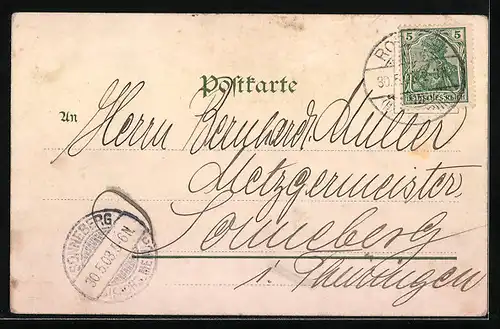 Postkarte
5 5
An
Herrn Bernhardt Müller
Metzgermeister
Sonneberg
i. Thüringen
SONNEBERG
30.5.03.